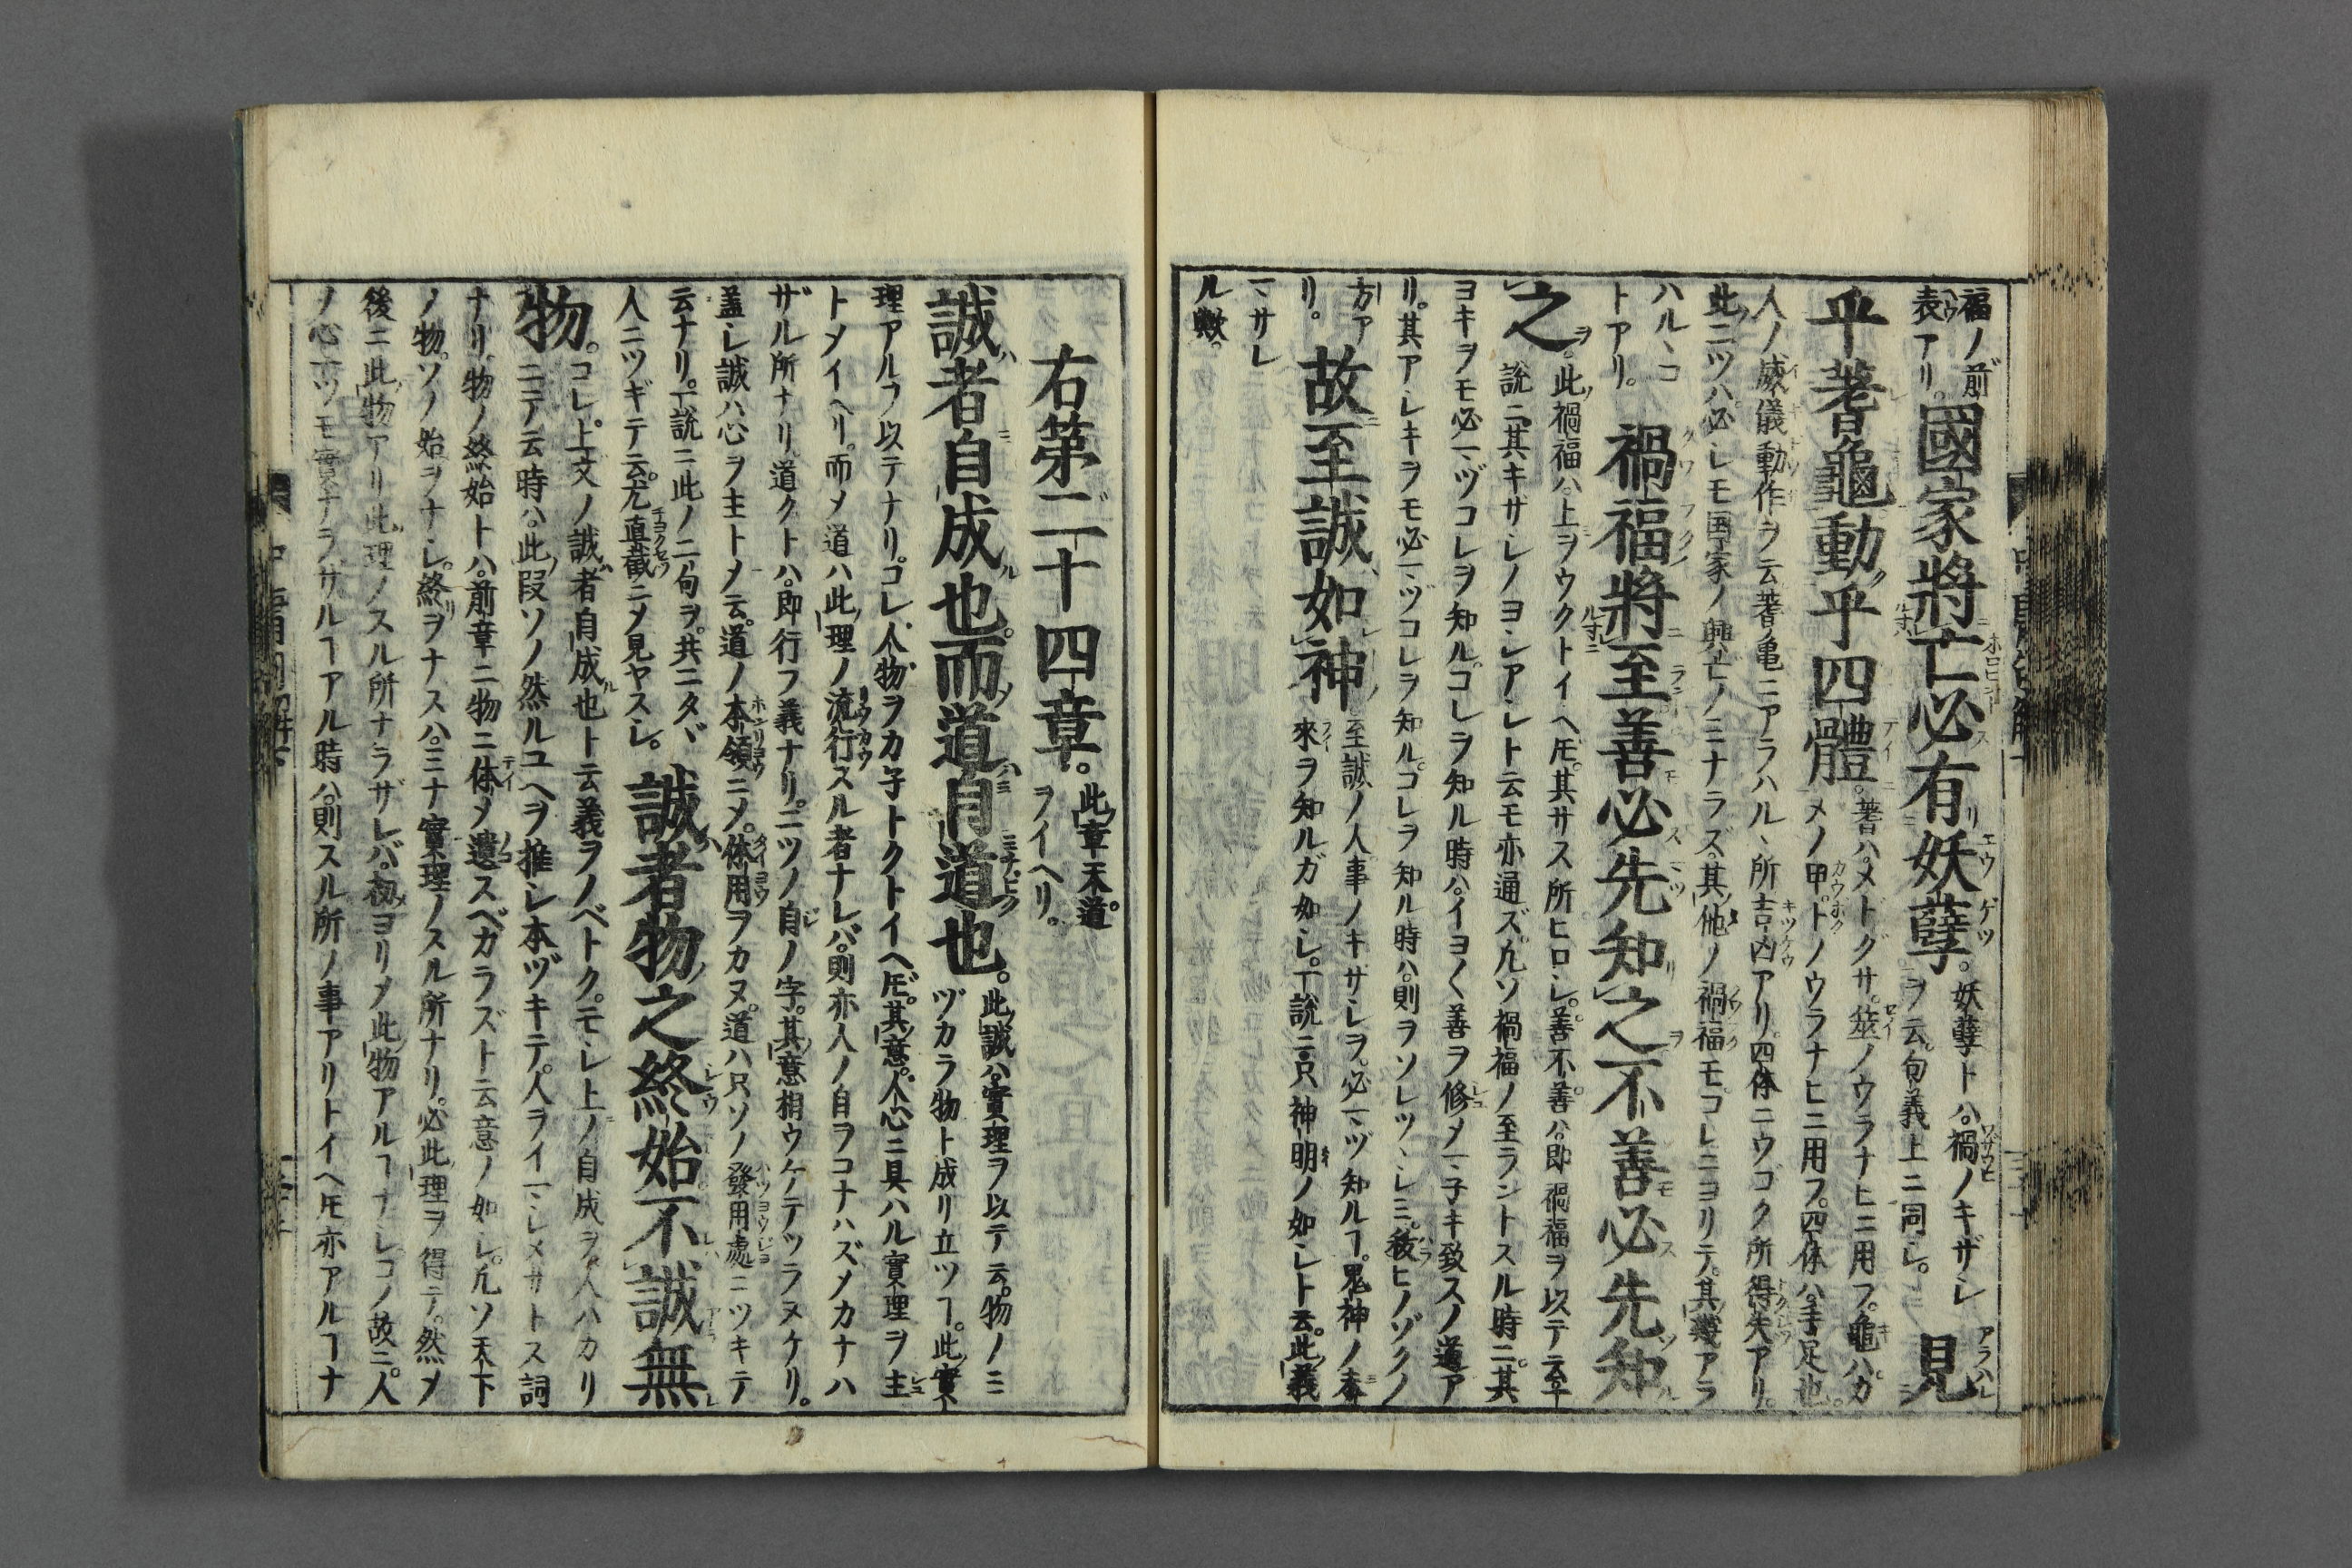 福ノ前
表アリ。國家將亡必有妖孽。妖孽トハ。禍ノキザシ
ヲ云。句義上ニ同シ。見
乎蓍龜動乎四體。蓍ハ。メトグサ。筮ノウラナヒニ用フ。龜ハカ
メノ甲。トノウラナヒニ用フ。四体ハ。手足也。
人ノ威儀動作ヲ云蓍亀ニアラハルヽ所吉凶アリ。四体ニウゴク所得失アリ。
此ニツハ必シモ国家ノ興亡ノミナラズ。其他ノ禍福モコレニヨリテ。其幾アラ
ハルヽコ
トアリ。禍福將至善必先知之不善必先知
之。此禍福ハ。上ヲウクトイヘ𪜈。其サス所ヒロシ。善不善ハ。即禍福ヲ以テ云。一
說ニ。其キザシノヨシアシト云モ亦通ズ。凡ソ禍福ノ至ラントスル時ニ。其
ヨキヲモ必マヅコレヲ知ル。コレヲ知ル時ハ。イヨ〱善ヲ修メマ子キ致スノ道ア
リ。其アシキヲモ必マヅコレヲ知ル。コレヲ知ル時ハ。則ヲソレツヽシミ。秡ヒノゾクノ
方ア
リ。故至誠如神至誠ノ人事ノキザシヲ。必マヅ知ルヿ。鬼神ノ
來ヲ知ルガ如シ。一說ニ只神明ノ如シト云。此義
マサレ
ル歟。
右第二十四章。此章天道
ヲイヘリ。
誠者自成也。而道自道也。此誠ハ實理ヲ以テ云。物ノミ
ヅカラ物ト成リ立ツヿ。此實
理アルヲ以テナリ。コレ人物ヲカ子トクトイヘ𪜈。其意。人心ニ具ハル實理ヲ主
トメイヘリ。而メ道ハ此理ノ流行スル者ナレバ。則亦人ノ自ヲコナハズメカナハ
ザル所ナリ。道クトハ。即行フ義ナリ。ニツノ自ノ字。其意相ウケテツラヌケリ。
蓋シ誠ハ心ヲ主トメ云。道ノ本領ニメ。体用ヲカヌ。道ハ只ソノ發用處ニツキテ
云ナリ。一說ニ此ノ二句ヲ。共ニタヾ
人ニツギテ云。尤直截ニメ見ヤスシ。誠者物之終始不誠無
物。コレ上文ノ誠者自成也ト云義ヲノベトク。モシ上ノ自成ヲ。人ハカリ
ニテ云時ハ。此段ソノ然ルユヘヲ推シ本ヅキテ。人ヲイマシメサトス詞
ナリ。物ノ終始トハ。前章ニ物ニ体メ遺スベカラズト云意ノ如シ。凡ソ天下
ノ物。ソノ始ヲナシ。終ヲナスハ。ミナ實理ノスル所ナリ。必此理ヲ得テ。然メ
後ニ此物アリ此理ノスル所ナラザレバ。初ヨリメ此物アルヿナシコノ故ニ。人
ノ心一ツモ實ナラザルヿアル時ハ。則スル所ノ事アリトイヘ𪜈亦アルヿナ